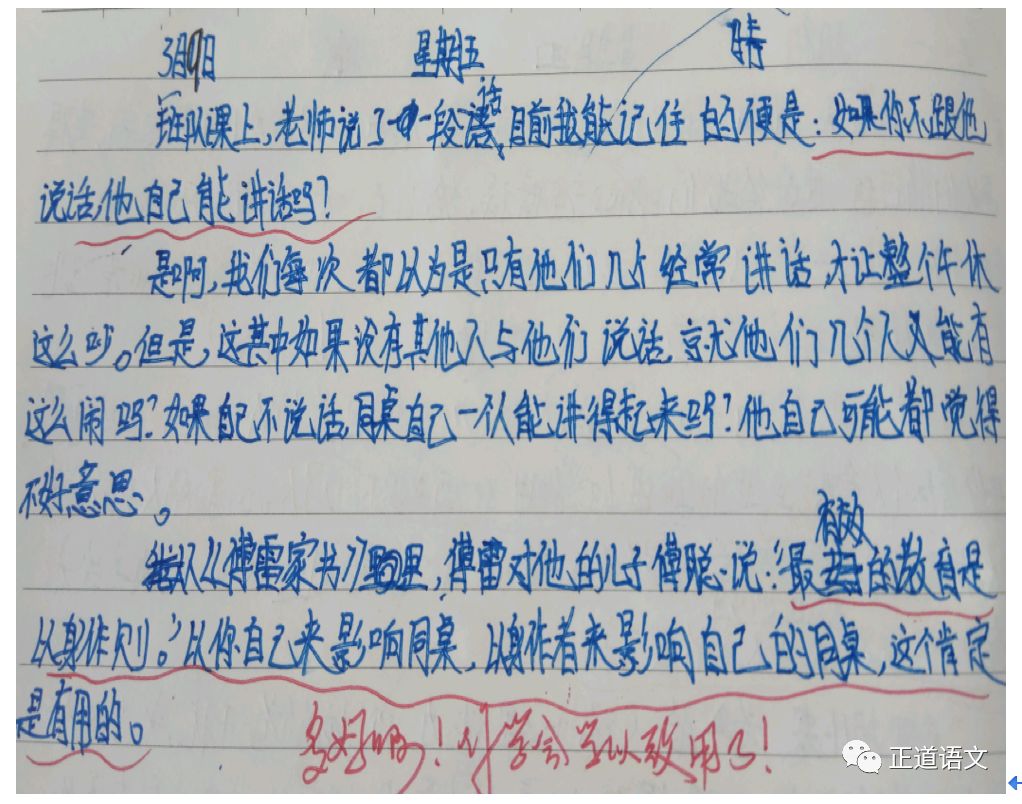 3月9日 星期五 晴
班队课上,老师说了一段话,目前我能记住的便是:如果你不跟他
说话,他自己能讲话吗?
是啊,我们每次都以为是只有他们几个经常讲话,才让整个午休
这么吵。但是,这其中如果没有其他人与他们说话,就他们几个人又能有
这么闹吗?如果自己不说话,同桌自己一人能讲得起来吗?他自己可能都觉得
不好意思。
从《傅雷家书》里,傅雷对他的儿子傅聪说:“最有效的教育是
以身作则。”以你自己来影响同桌,以身作者来影响自己的同桌,这个肯定
是有用的。
多好啊!学会学以致用了!
正道语文